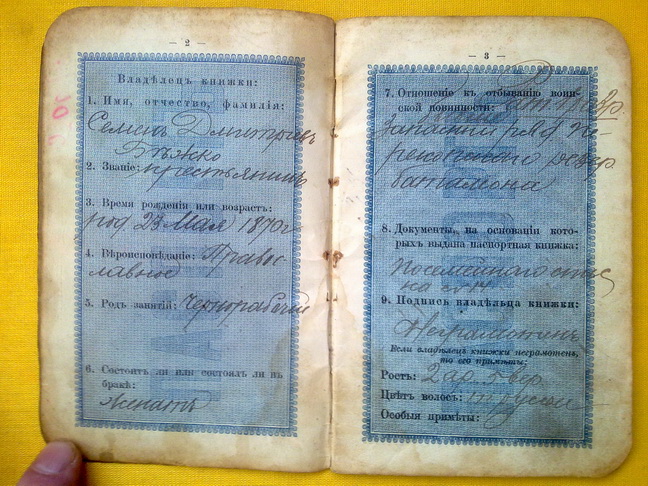 — 2 —
Владѣлецъ книжки:
1. Имя, отчество, фамилія:
Семенъ Дмитріевъ
Бѣжко
2. Званіе: крестьянинъ
3. Время рожденія или возрастъ:
род 23 Мая 1870 г
4. Вѣроисповѣданіе: Право-
славное
5. Родъ занятій: Чернорабочій
6. Состоитъ ли или состоялъ ли въ
бракѣ:
Женатъ
— 3 —
7. Отношеніе къ отбыванію воин-
ской повинности:
Запасный ряд Пе-
рекопскаго резер
баталіона
8. Документы, на основаніи кото-
рыхъ выдана паспортная книжка:
Посемейнаго спис
на №14
9. Подпись владѣльца книжки:
Неграмотенъ
Если владѣлецъ книжки неграмотенъ,
то его примѣты:
Ростъ: 2 ар. 5 вер.
Цвѣтъ волосъ: т русый
Особыя примѣты:
ПАСПОРТНАЯ